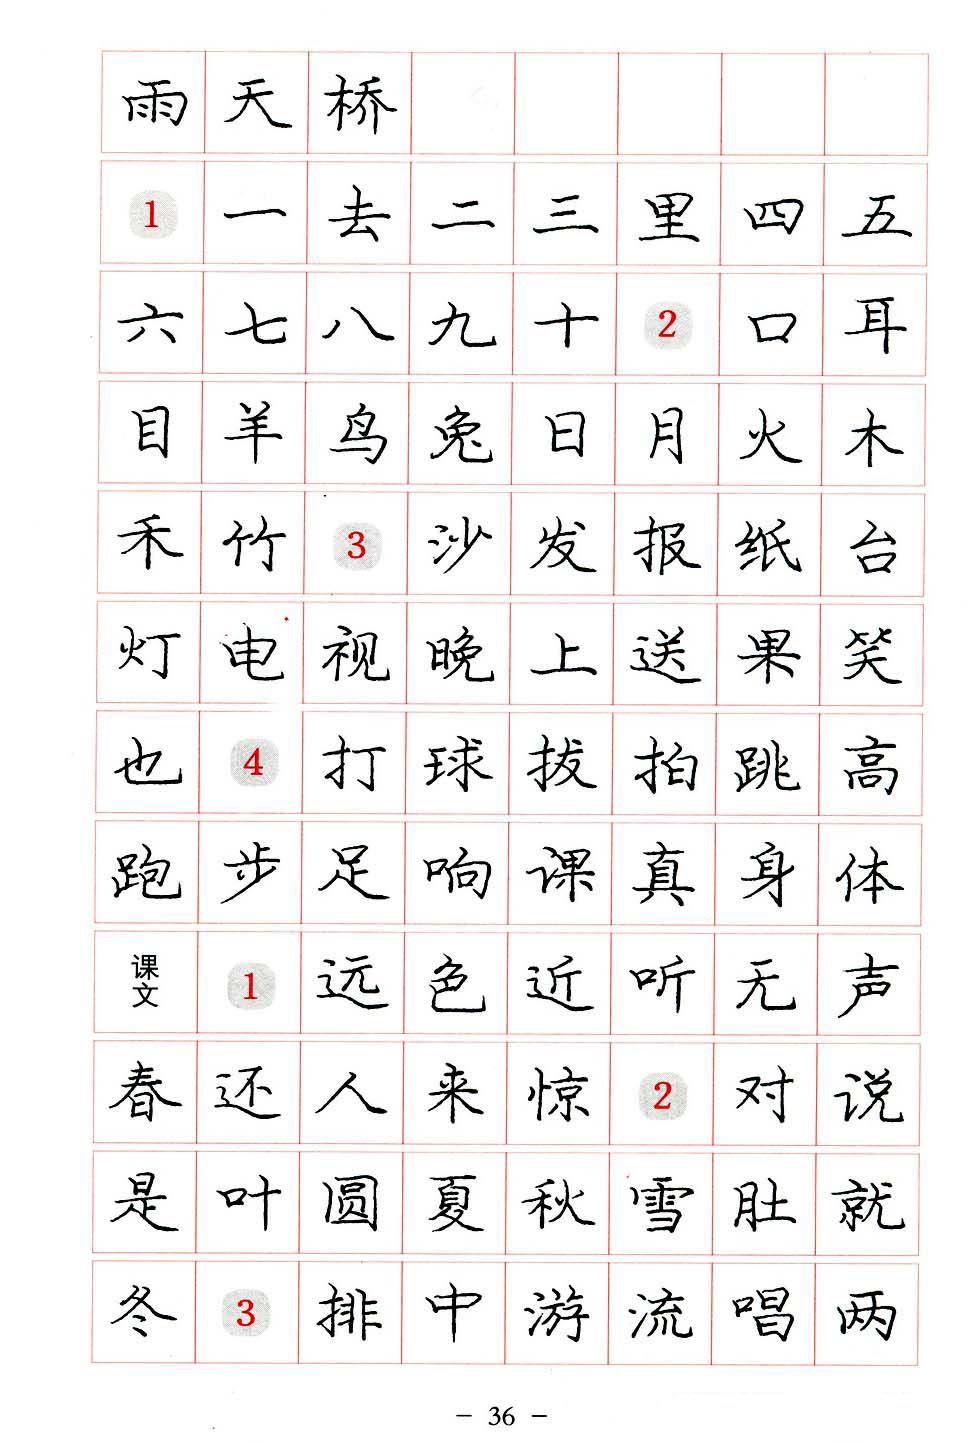 雨天桥
1一去二三里四五
六七八九十2口耳
目羊鸟兔日月火木
禾竹3沙发报纸台
灯电视晚上送果笑
也4打球拔拍跳高
跑步足响课真身体
课文1远色近听无声
春还人来惊2对说
是叶圆夏秋雪肚就
冬3排中游流唱两
- 36 -